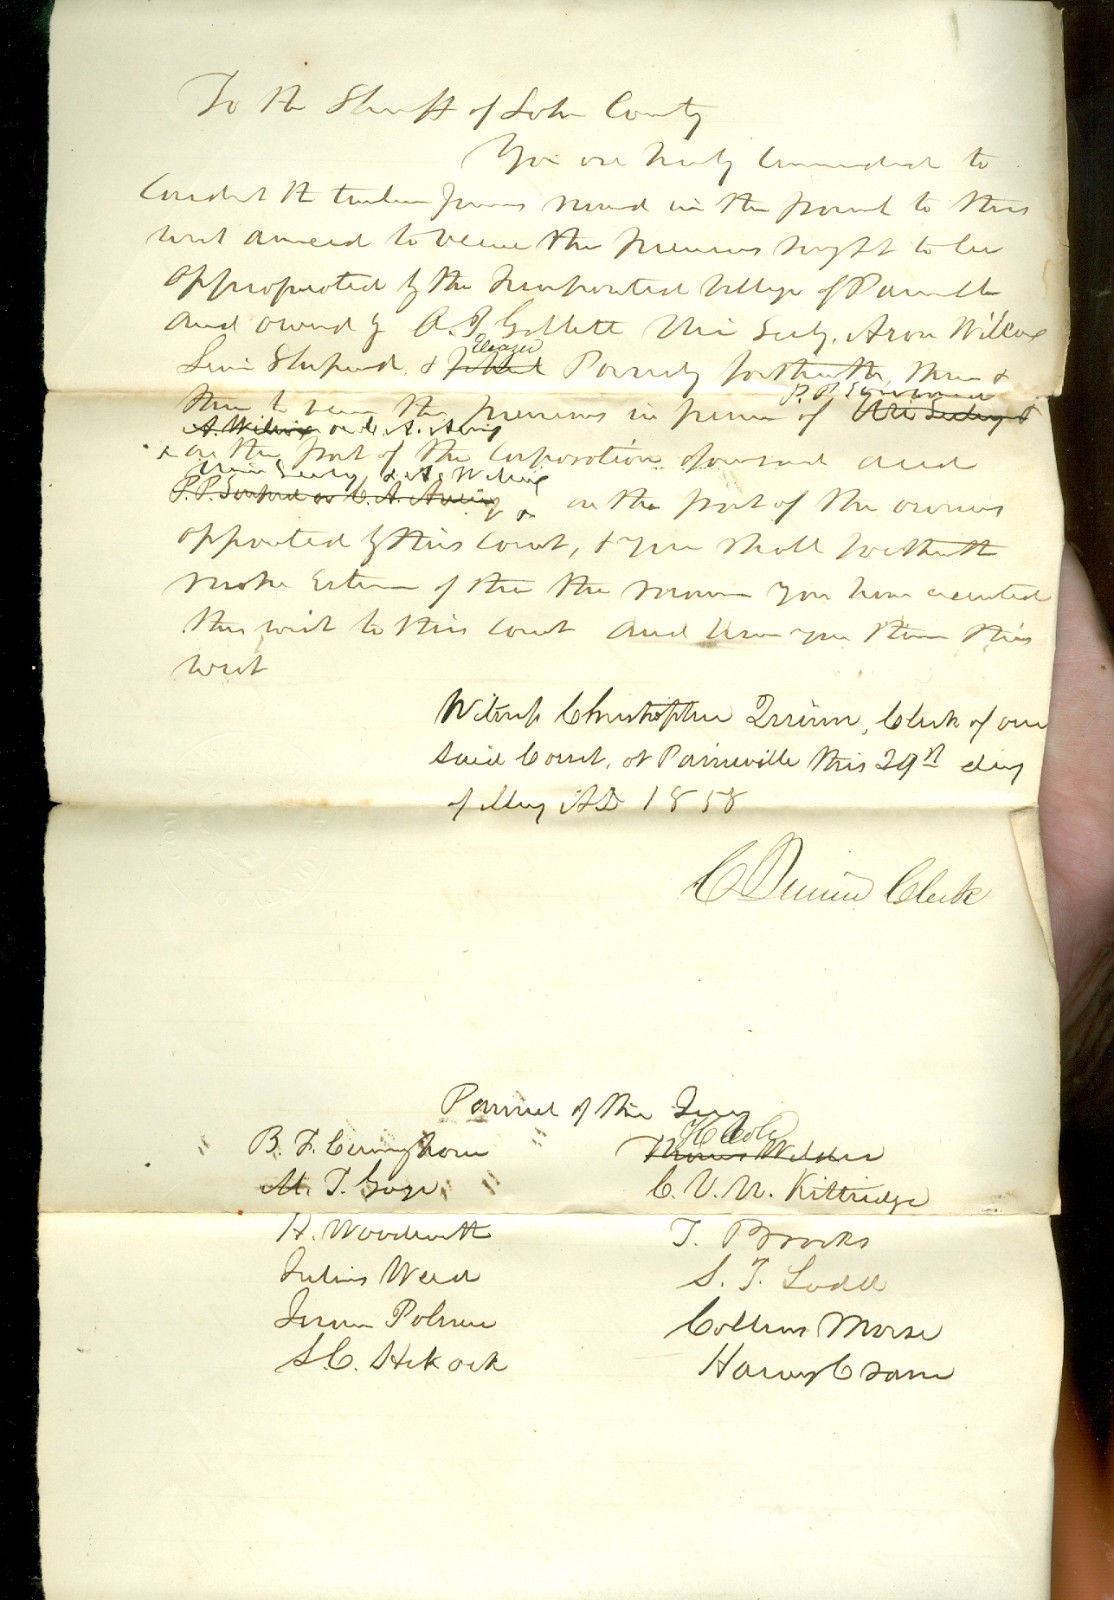 To the Sheriff of Lake County
You are hereby Commanded to
Conduct the twelve Jurors named in the pannel to this
writ annexed to view the premises sought to be
appropriated by the Incorporated Village of Painesville
and owned by A. P. Uri Seely, Aron Wilcox
Eleazer
Levi Shepard, & Parmly forthwith, then &
P. P.
there to view the premises in person of Uri Seely &
A. Wilcox or C. A. Avery
& on the part of the Corporation aforesaid and
Uri Seely & A. Wilcox
P. P. Sanford or C. A. Avery & on the part of the owners
appointed by this Court, & you shall forthwith
make return of the the manner you have executed
this writ to this Court and have you then this
writ
Witness Christopher Quinn, Clerk of our
said Court, at Painesville this 29th day
of May AD 1858
C Quinn Clerk
Pannel of the Jury
H Cole
B. F. Cunningham Thomas Wilder
M. T. Gage C. V. N. Kittridge
H. Woodworth T. Brooks
Julius Weed S. T. Ladd
Palmer Collins Morse
S. C. Hickock Harvey Crane